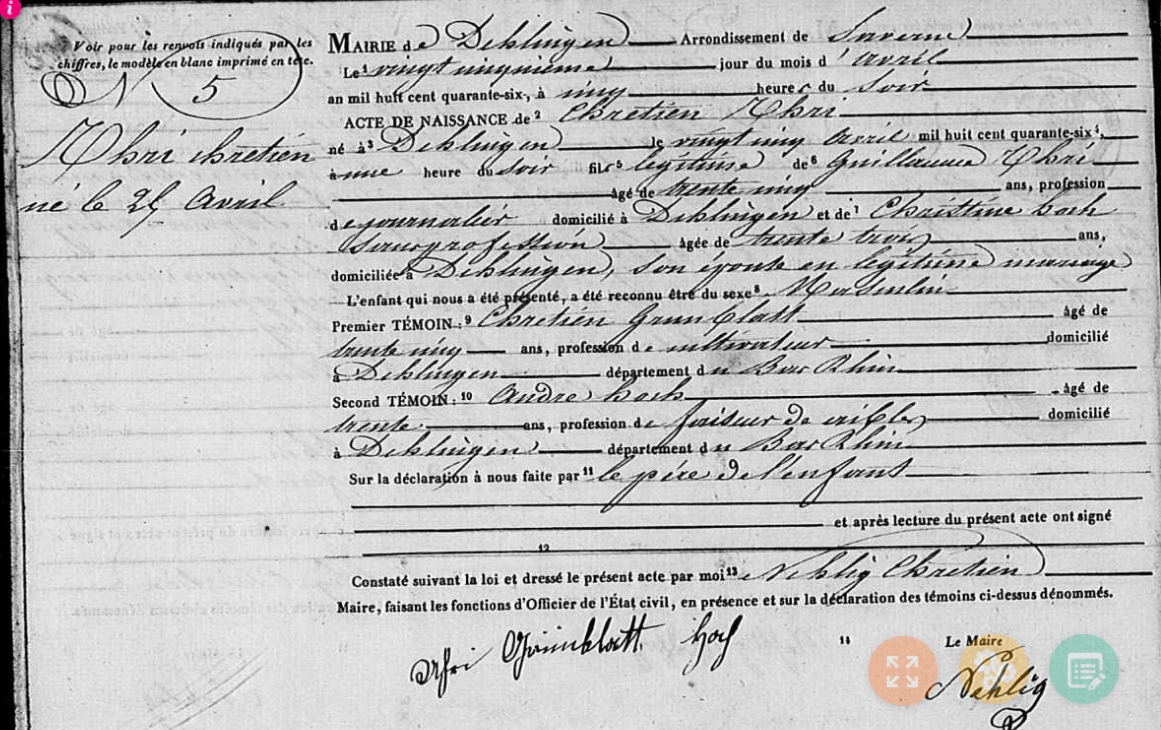 i
Voir pour les renvois indiqués par les
chiffres, le modèle en blanc imprimé en tête.
N 5
Uhri chrétien
né le 25 Avril
MAIRIE de Dehlingen Arrondissement de Saverne
Le 1 vingt cinquième jour du mois d'avril
an mil huit cent quarante-six, à cinq heures du Soir
ACTE DE NAISSANCE de 2 Chrétien Uhri
né à 3 Dehlingen le vingt cinq Avril mil huit cent quarante-six 4,
à une heure du soir fils 5 légitime de 6 Guillaume Uhri
âgé de trente cinq ans, profession
de journalier domicilié à Dehlingen et de 7 Christine hoch
Sans profession âgée de trente trois ans,
domiciliée à Dehlingen, Son épouse en légitime mariage
L'enfant qui nous a été présenté, a été reconnu être du sexe 8 Masculin
Premier TÉMOIN : 9 Chrétien Grunblatt âgé de
trente cinq ans, profession de cultivateur domicilié
à Dehlingen département du Bas Rhin
Second TÉMOIN : 10 André hoch âgé de
trente ans, profession de faiseur de cribles domicilié
à Dehlingen département du Bas Rhin
Sur la déclaration à nous faite par 11 le père de l'enfant
et après lecture du présent acte ont signé
12
Constaté suivant la loi et dressé le présent acte par moi 13 Nehlig Chrétien
Maire, faisant les fonctions d'Officier de l'État civil, en présence et sur la déclaration des témoins ci-dessus dénommés.
Uhri Grünblatt Hoch 14 Le Maire
Nehlig